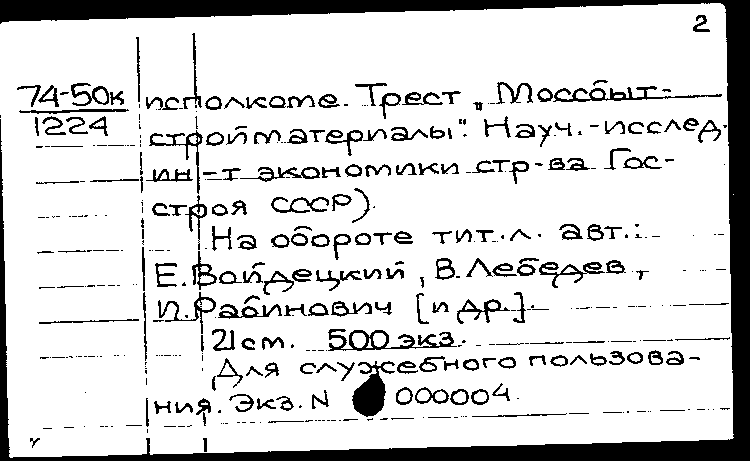 2
74-50к исполкоме. Трест „Моссбыт-
1224 стройматериалы". Науч.-исслед.
ин-т экономики стр-ва Гос-
строя СССР).
На обороте тит. л. авт.:
Е. Войдецкий, В. Лебедев,
И. Рабинович [и др.].
21 cm. 500 экз.
Для служебного пользова-
ния. Экз. N 000004.